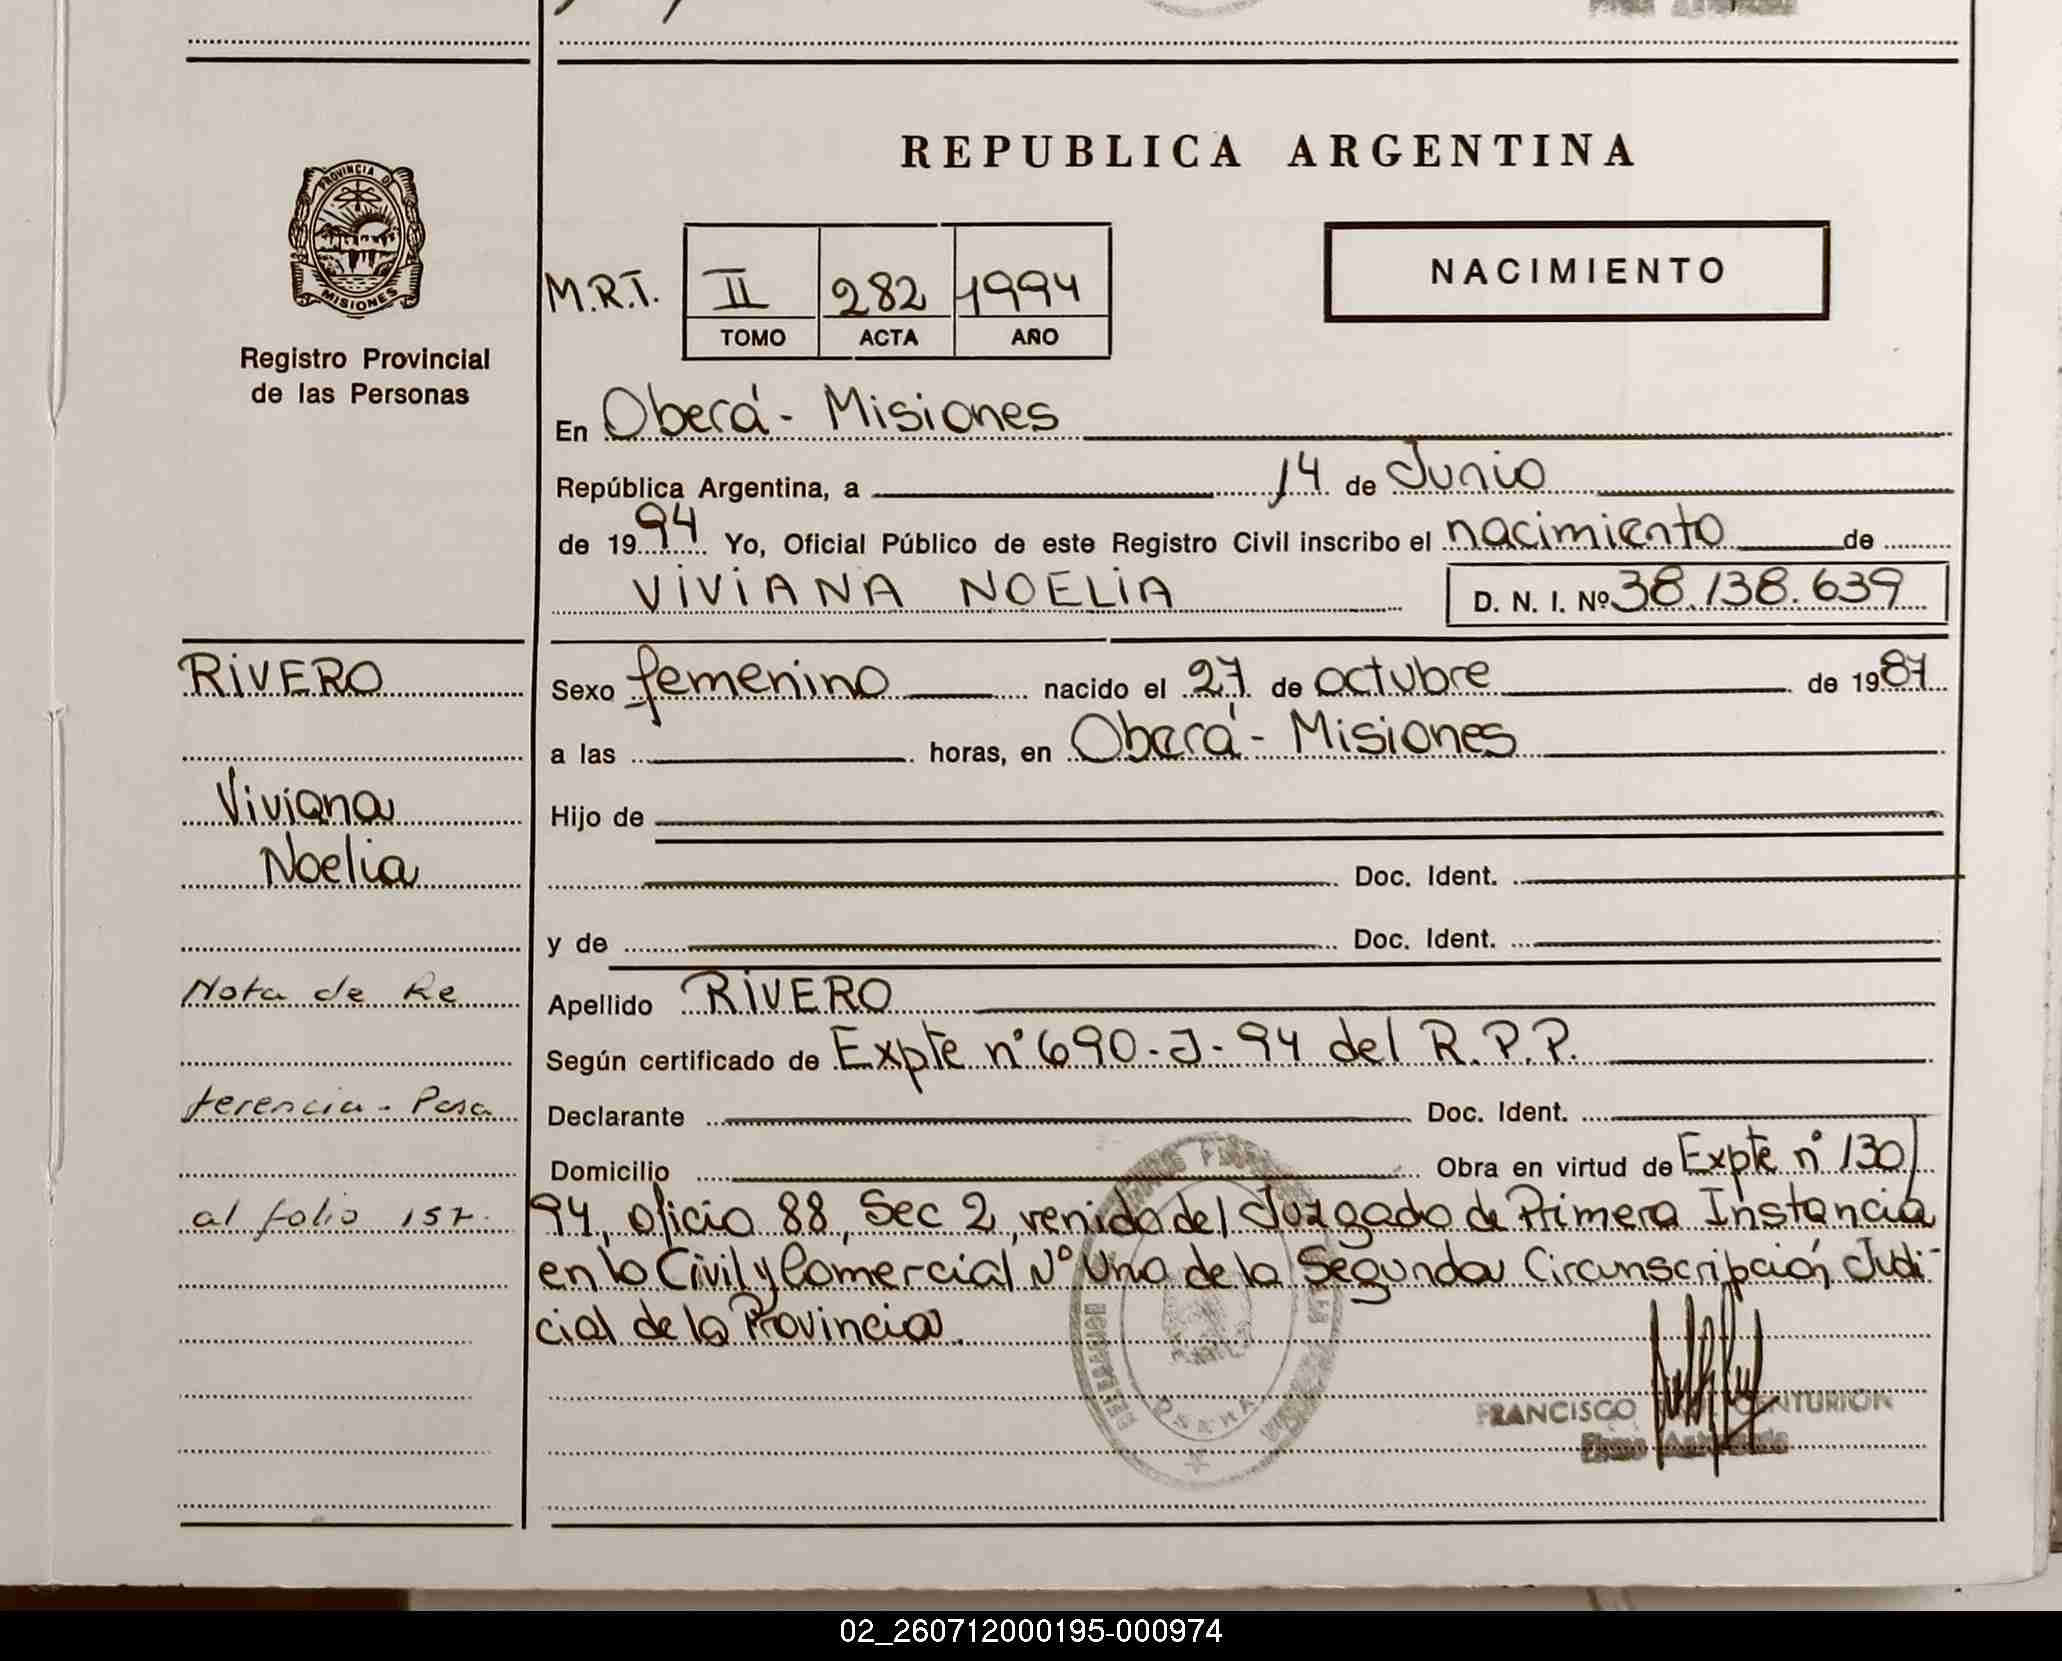 REPUBLICA ARGENTINA
PROVINCIA DE
MISIONES
Registro Provincial
de las Personas
NACIMIENTO
M.R.T. II 282 1994
TOMO ACTA AÑO
En Oberá - Misiones
República Argentina, a 14 de Junio
de 1994 Yo, Oficial Público de este Registro Civil inscribo el nacimiento de
VIVIANA NOELIA D. N. I. Nº 38.138.639
RIVERO
Viviana
Noelia
Nota de Re
ferencia - Pasa
al folio 157.
Sexo femenino nacido el 27 de octubre de 1987
a las horas, en Oberá - Misiones
Hijo de
Doc. Ident.
y de Doc. Ident.
Apellido RIVERO
Según certificado de Expte nº 690-J-94 del R.P.P.
Declarante Doc. Ident.
Domicilio Obra en virtud de Expte nº 130/
94, oficio 88, Sec 2, venido del Juzgado de Primera Instancia
en lo Civil y Comercial Nº Uno de la Segunda Circunscripción Judi-
cial de la Provincia.
FRANCISCO CENTURION
02_260712000195-000974